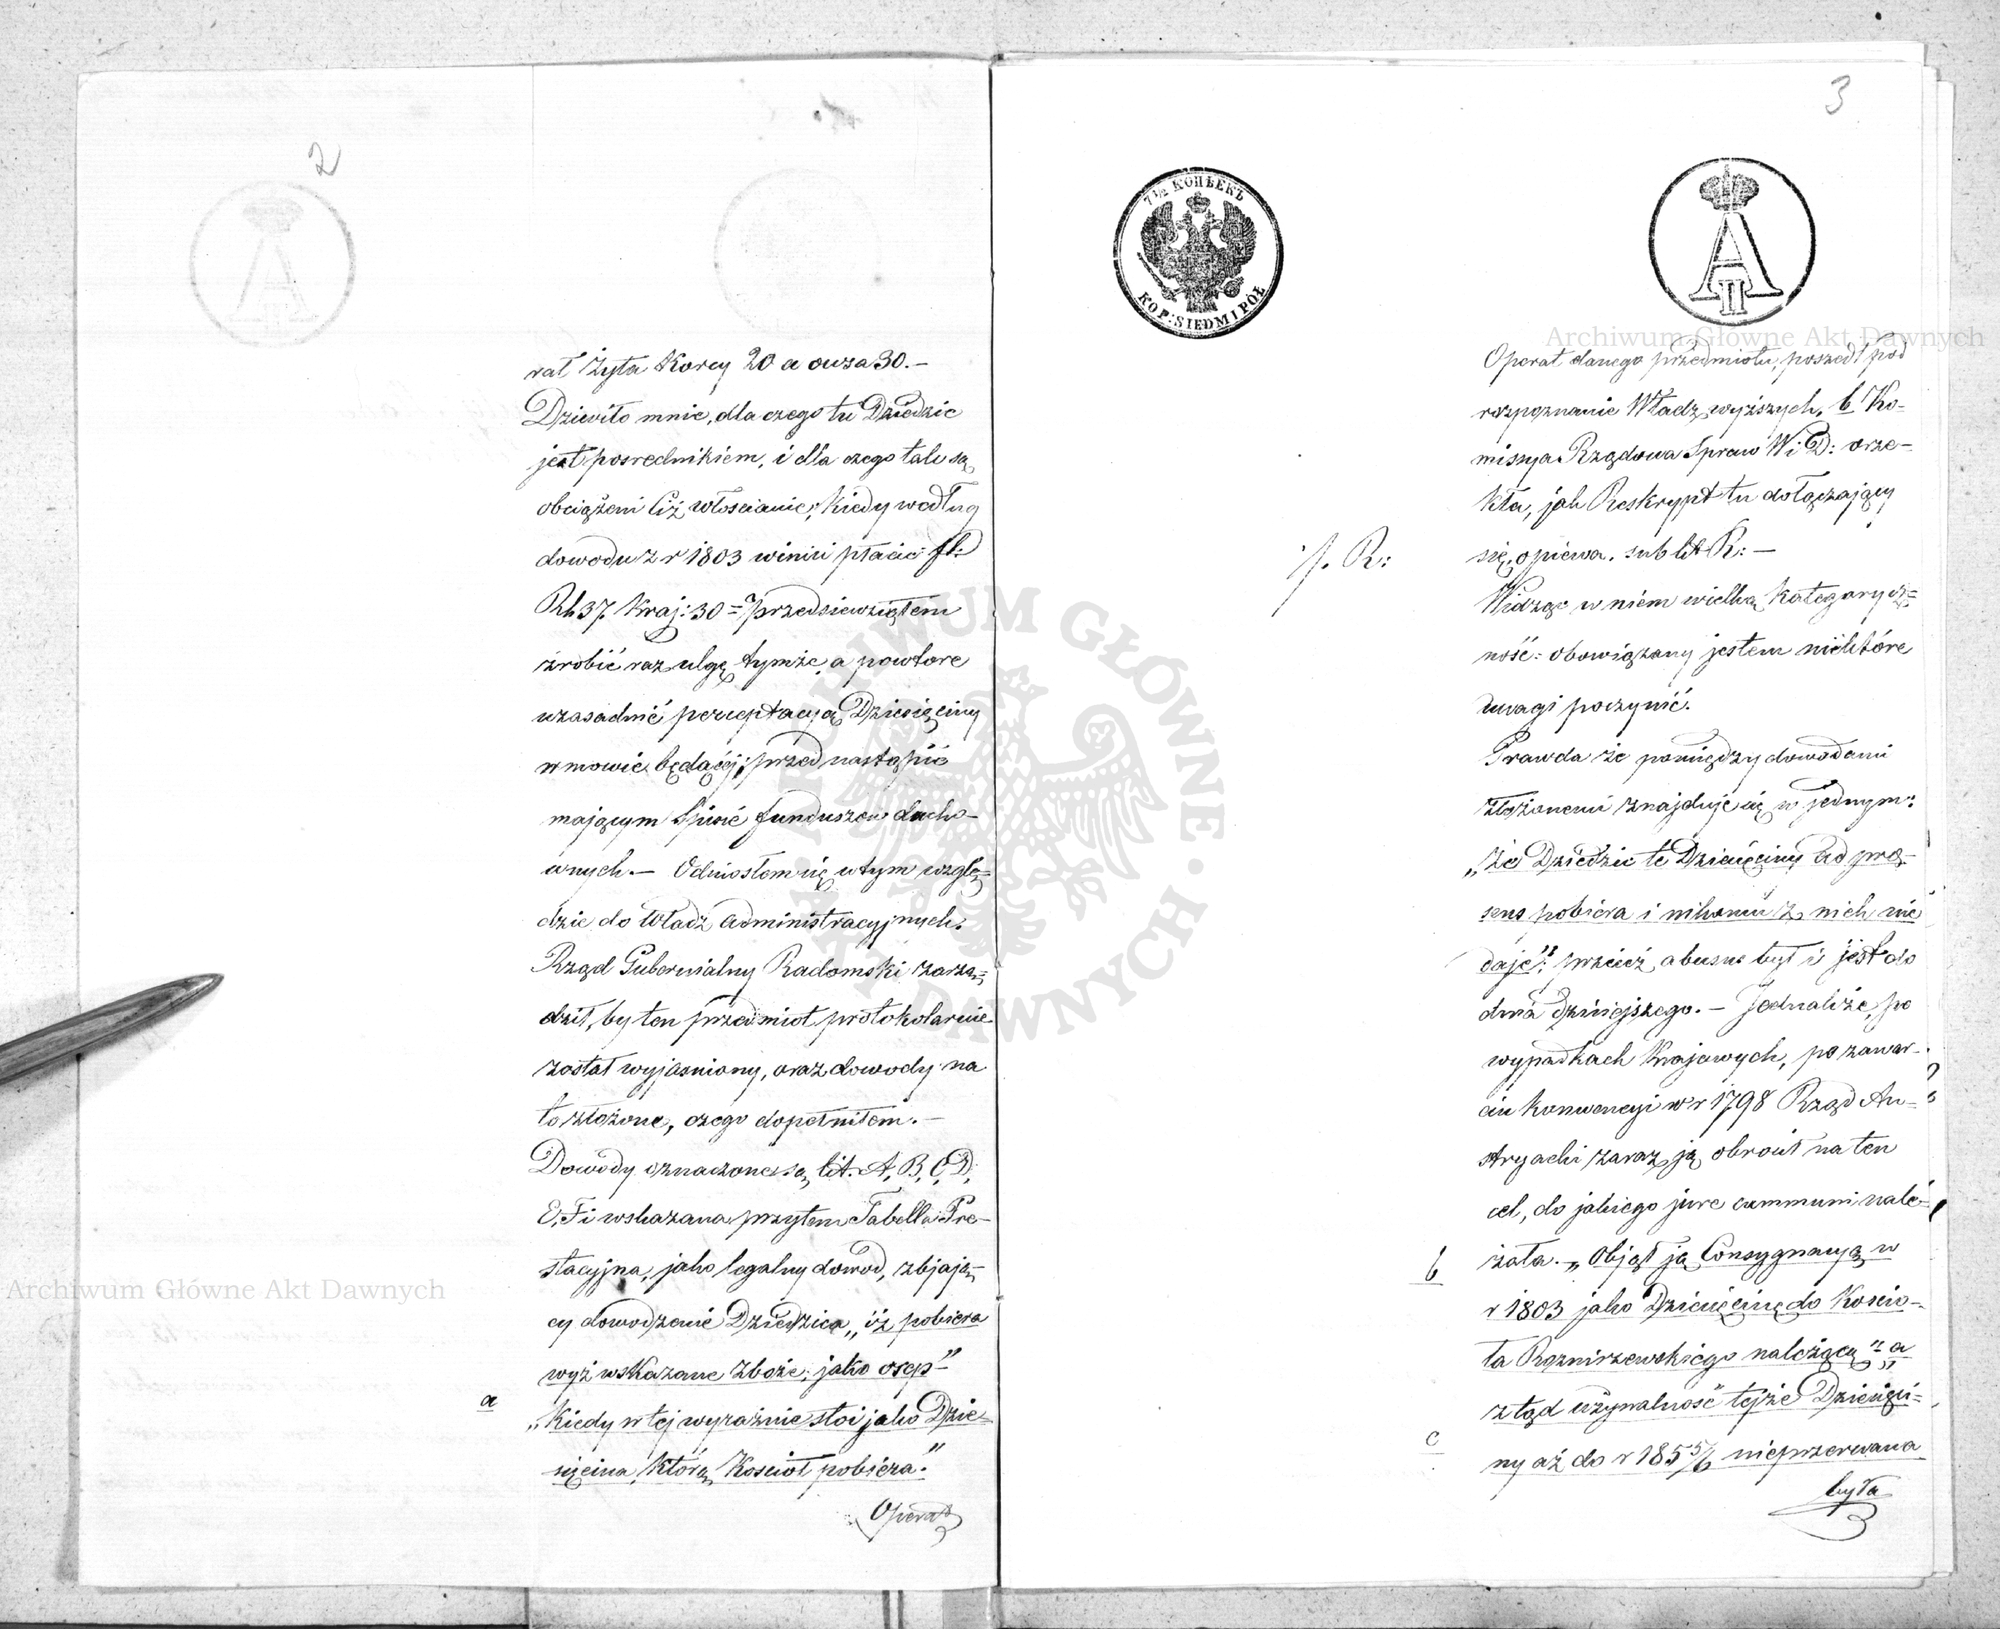 2
rał Żyta Korcy 20 a owsa 30.–
Dziwiło mnie, dla czego tu Dziedzic
jest posrednikiem, i dla czego tak są
obciążeni Ciż włoscianie; kiedy według
dowodu z r 1803 winni płacić fl:
Rh 37 Kraj: 30 = przedsiewziąłem
zrobić raz ulgę tymże, a powtore
uzasadnić percepcyą Dziesięciny
w mowie będącéj; przed nastąpić
mającym Spisie funduszow ducho-
wnych.– Odniosłem się w tym wzglę=
dzie do Władz administracyjnych.
Rząd Gubernialny Radomski zarzą=
dził, by ten przedmiot protokolarnie
został wyjasniony, oraz dowody na
to złożone, czego dopełniłem.–
Dowody oznaczone są lit. A, B, C, D,
E, F i wskazana przytem Tabella Pre-
stacyjna, jako legalny dowod, zbijają-
cy dowodzenie Dziedzica „iż pobiera
wyż wskazane zboże, jako osep”
a
„Kiedy w tej wyraźnie stoi jako Dzie=
sięcina, którą Kosciół pobiera.”
Operat
3
7½ КОПѢЕКЪ
KOP: SIEDM I PÓŁ
A II
Operat danego przedmiotu, poszedł pod
rozpoznanie Władz wyższych. b Ko-
missya Rządowa Spraw W i D: orze-
kła, jak Reskrypt tu dołączający
się opiewa. sub lit R: –
/. R:
Widząc w niem wielką Kategorycz=
ność: obowiązany jestem niektóre
uwagi poczynić.
Prawda że pomiędzy dowodami
złożonemi znajduje się w jednym:
„że Dziedzic te Dziesięciny ad prę-
sens pobiera i nikomu z nich nie
daje”: przecież abusus był i jest do
dnia dzisiejszego.– Jednakże, po
wypadkach Krajowych, po zawar-
ciu konwencyi w r 1798 Rząd Au=
stryacki zaraz ją obrocił na ten
cel, do jakiego jure communi nale=
b
żała. „Objął ją Consygnacyą w
r 1803 jako Dziesięcinę do Koscio-
ła Rozniszewskiego należącą” a
z tąd używalność tejże Dziesięci=
c
ny aż do r 185 5/6 nieprzerwana
była
Archiwum Główne Akt Dawnych
Archiwum Główne Akt Dawnych
ARCHIWUM GŁÓWNE AKT DAWNYCH